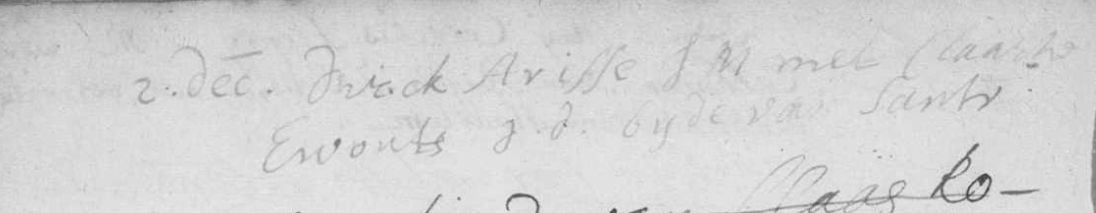 2. dec. Dirick Arisse J M met Claartie
Ewouts J. d. byde van Santv.
Claas Ko-